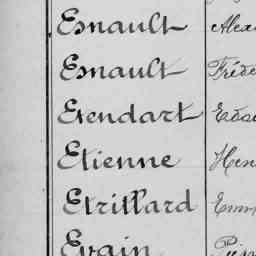 Esnault Alex
Esnault Frédé
Etendart
Etienne Hen
Etrillard Emm
Evain